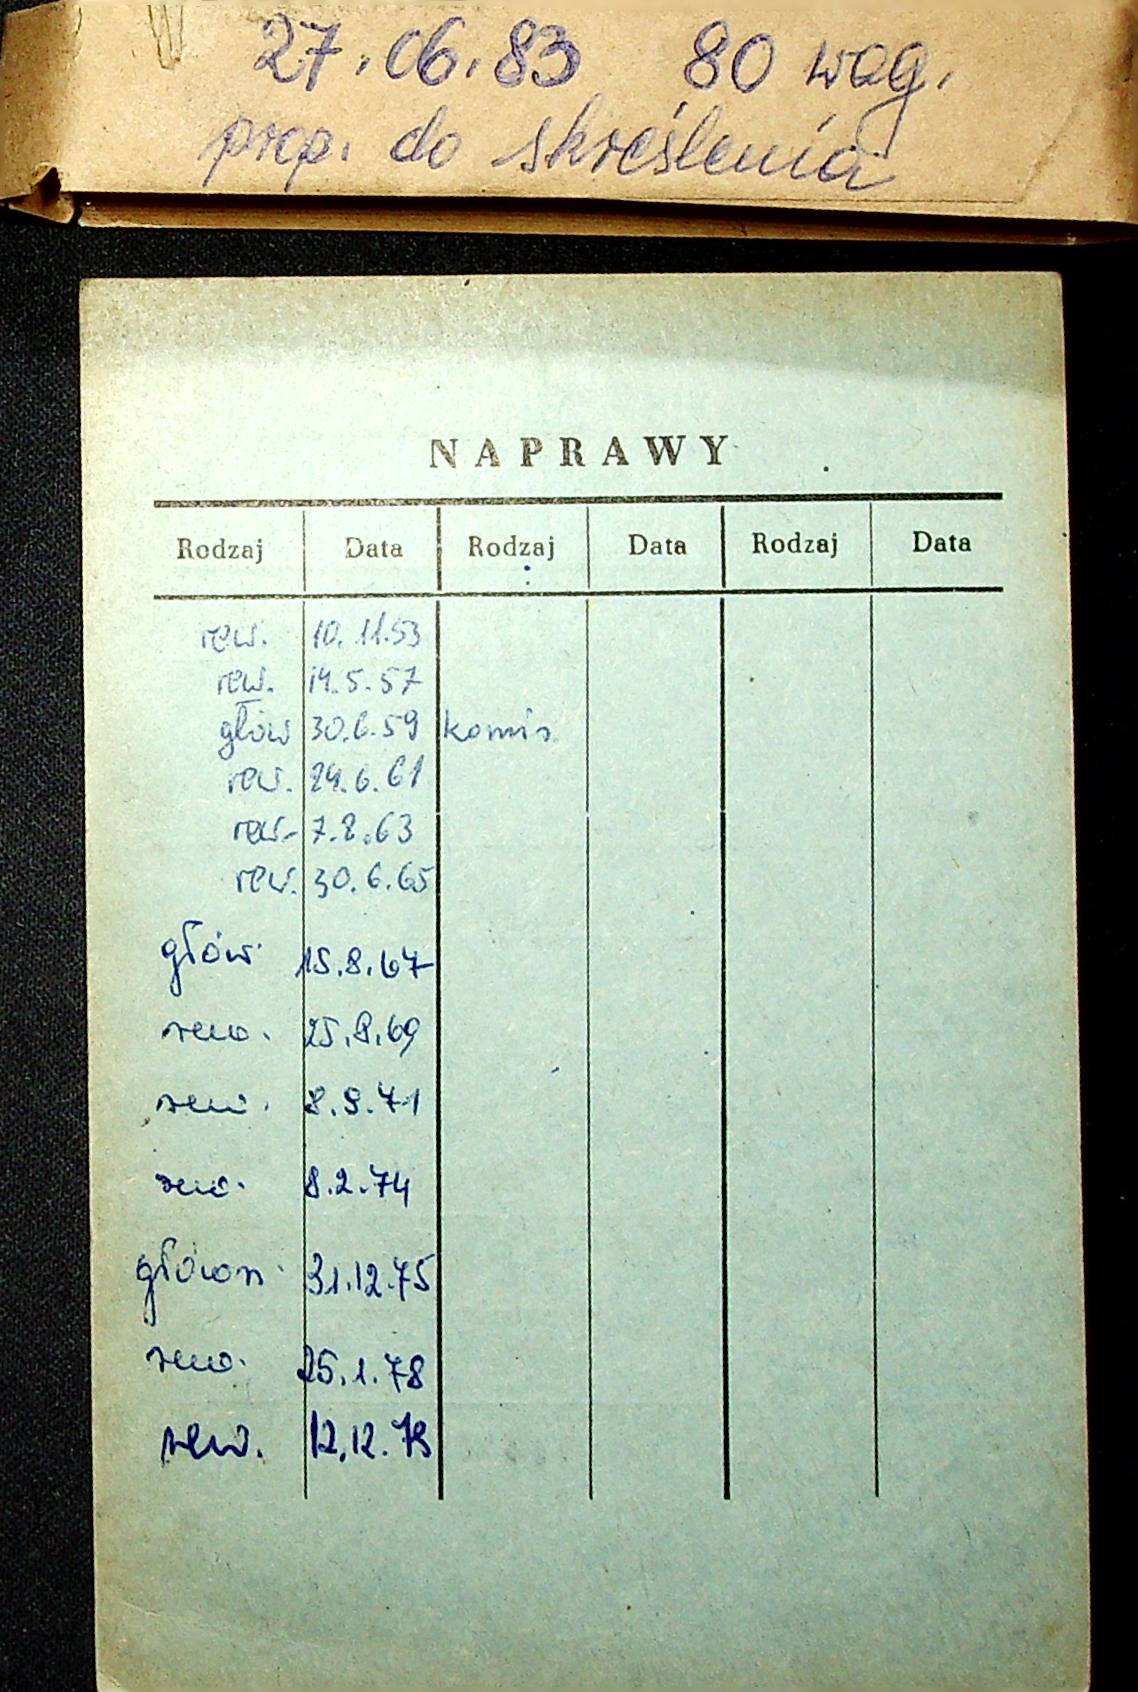 27.06.83 80 wag.
prop. do skreślenia
NAPRAWY
Rodzaj Data Rodzaj Data Rodzaj Data
rew. 10.11.53
rew. 14.5.57
głów 30.6.59 komis
rew. 24.6.61
rew. 7.8.63
rew. 30.6.65
głów. 15.8.67
rew. 25.8.69
rew. 8.9.71
rew. 8.2.74
głown. 31.12.75
rew. 25.1.78
rew. 12.12.79